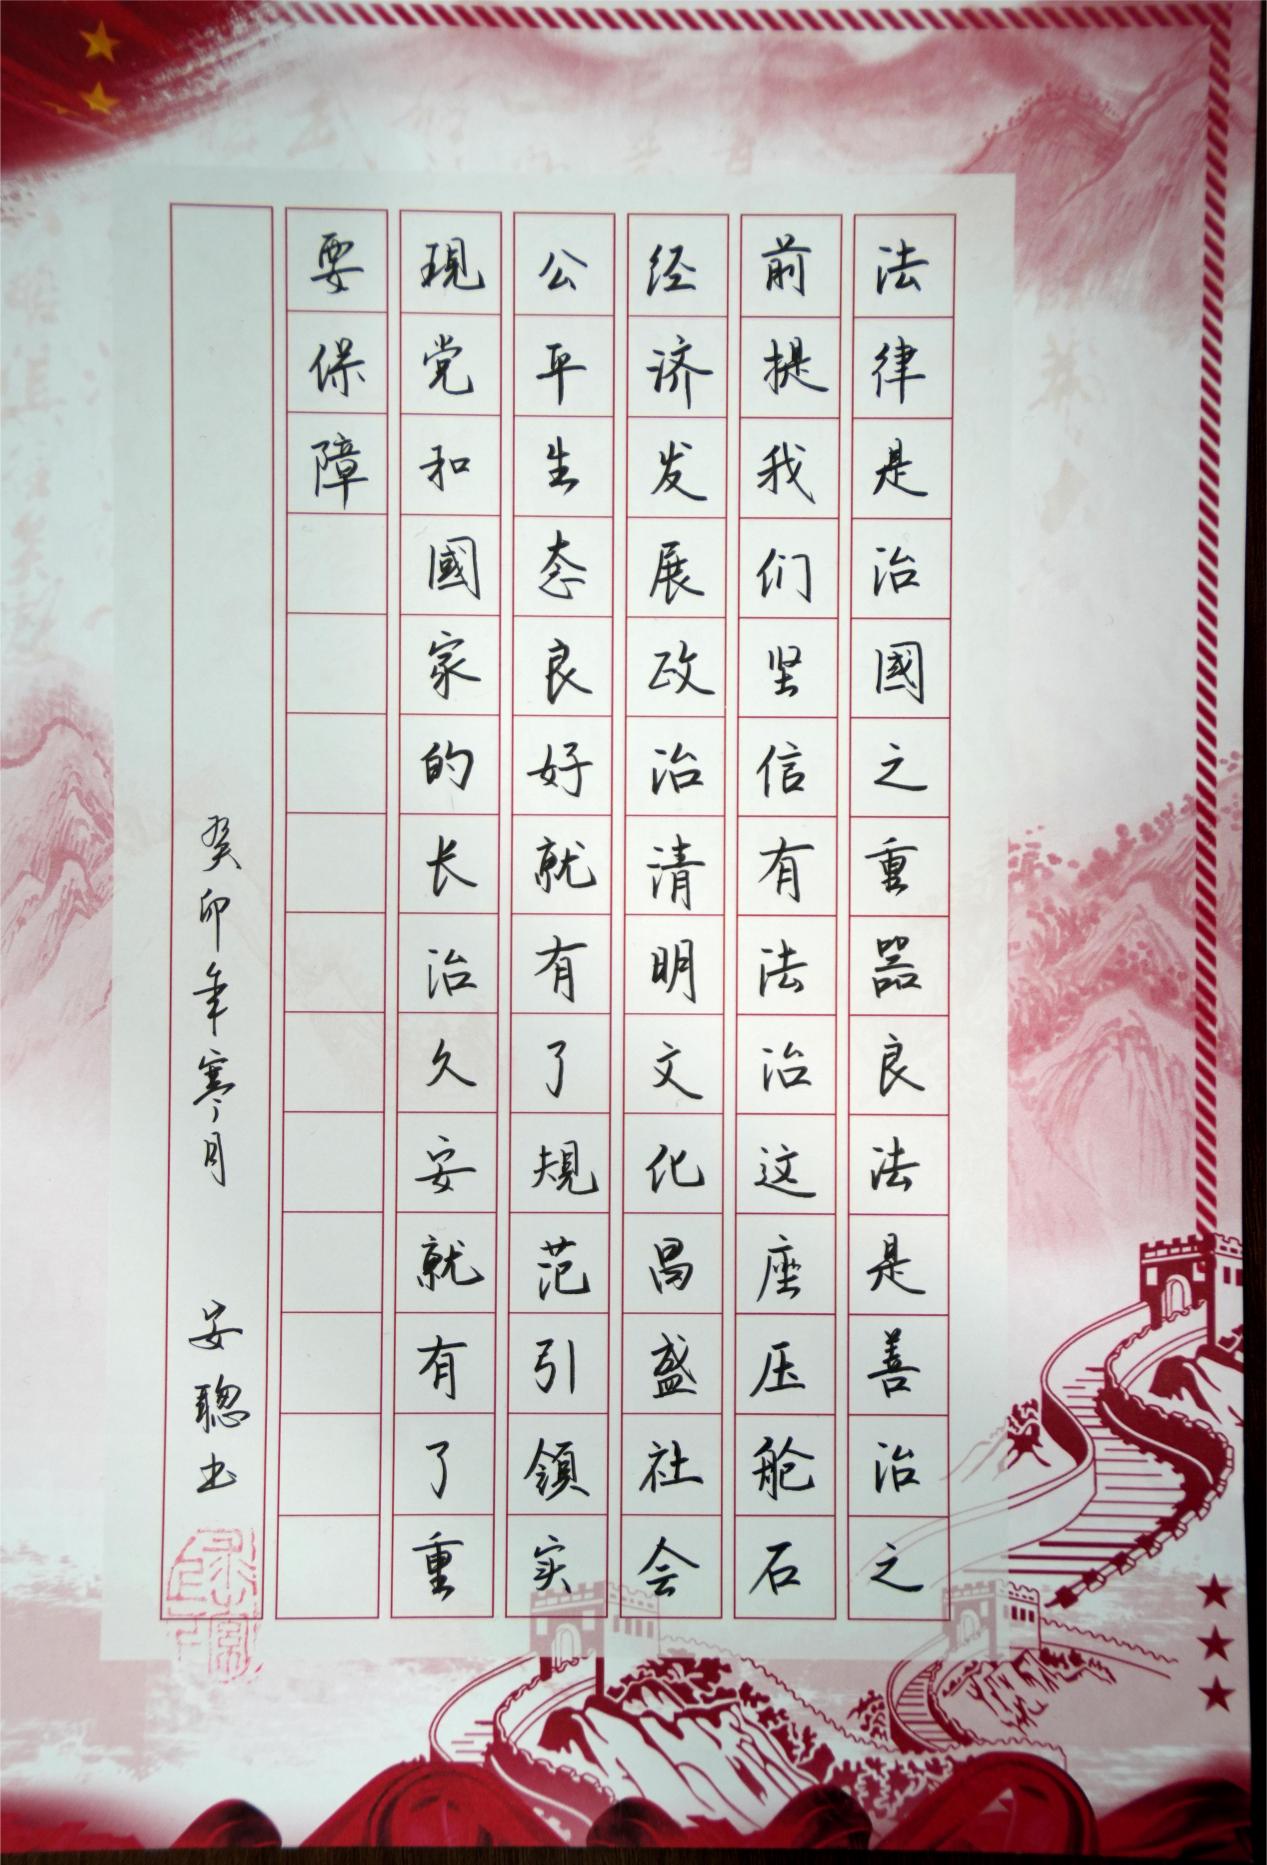 法律是治國之重器良法是善治之
前提我们坚信有法治这座压舱石
经济发展政治清明文化昌盛社会
公平生态良好就有了規范引領实
現党和國家的长治久安就有了重
要保障
癸卯年寒月 安聰书